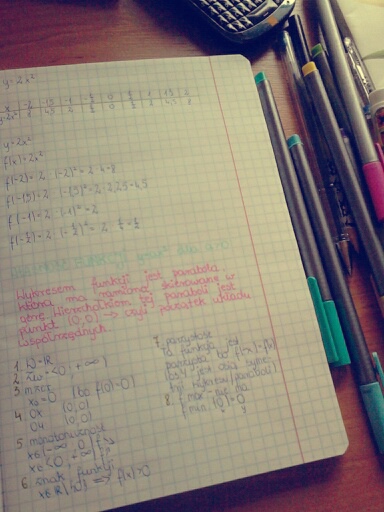 y=2x²
x | -2 | -1,5 | -1 | -½ | 0 | ½ | 1 | 1,5 | 2
y=2x² | 8 | 4,5 | 2 | ½ | 0 | ½ | 2 | 4,5 | 8
y=2x²
f(x)=2x²
f(-2)=2·(-2)²=2·4=8
f(-1,5)=2·(-1,5)²=2·2,25=4,5
f(-1)=2·(-1)²=2
f(-½)=2·(-½)²=2·¼=½
funkcji y=ax² dla a>0
Wykresem funkcji jest parabola,
która ma ramiona skierowane w
górę. Wierzchołkiem tej paraboli jest
punkt (0,0) → czyli początek układu
współrzędnych.
1. D=R
2. <0, +∞)
3. m. zerowe
x₀=0 (bo f(0)=0)
4. OX (0,0)
OY (0,0)
5. monotoniczność
x∈(-∞, 0)
x∈<0, +∞)
6. znak funkcji
f(x)>0
7. parzystość
Ta funkcja jest
parzysta bo f(-x)=f(x)
(OY jest osią symetrii
tej paraboli)
8. f max - nie ma
f min. f(0)=0